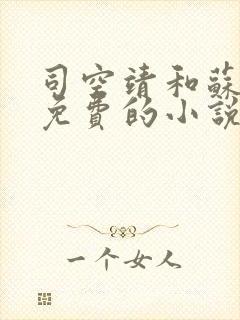 司空靖和蘇
免費的小說
一个女人